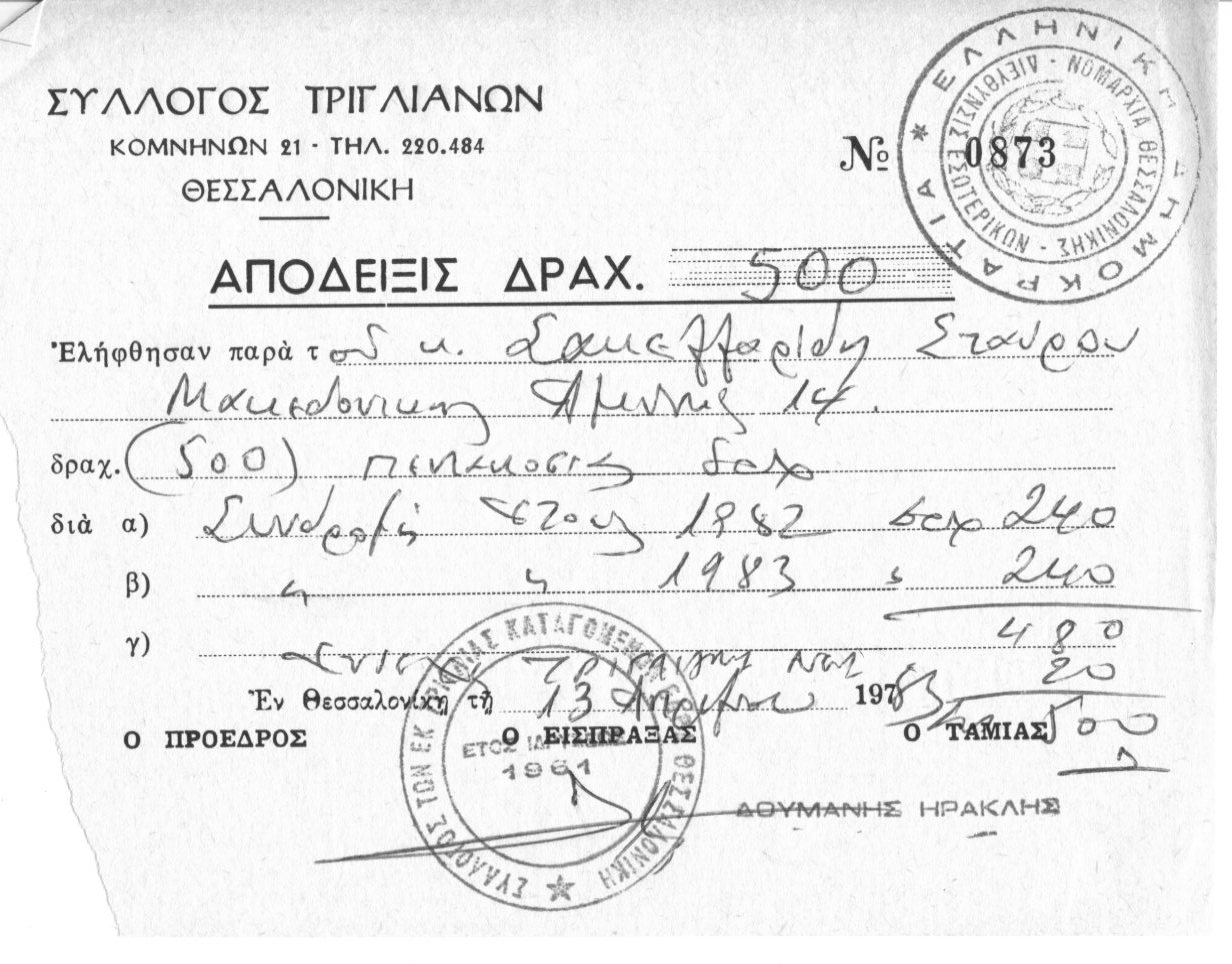 ΣΥΛΛΟΓΟΣ ΤΡΙΓΛΙΑΝΩΝ
ΚΟΜΝΗΝΩΝ 21 · ΤΗΛ. 220.484
ΘΕΣΣΑΛΟΝΙΚΗ
№ 0873
ΕΛΛΗΝΙΚΗ ΔΗΜΟΚΡΑΤΙΑ
ΝΟΜΑΡΧΙΑ ΘΕΣΣΑΛΟΝΙΚΗΣ - ΔΙΕΥΘΥΝΣΙΣ ΕΣΩΤΕΡΙΚΩΝ -
ΑΠΟΔΕΙΞΙΣ ΔΡΑΧ. 500
Ἐλήφθησαν παρὰ τοῦ κ. Σακελλαρίδη Σταύρου
Μακεδονικης Αμυνης 14.
δραχ. (500) πεντακοσιες δρχ
διὰ α) Συνδρομή έτους 1982 δρχ 240
β) " " 1983 " 240
γ) 480
20
Ἐν Θεσσαλονίκῃ τῇ 13 Απριλιου 1983
500
Ο ΠΡΟΕΔΡΟΣ Ο ΕΙΣΠΡΑΞΑΣ Ο ΤΑΜΙΑΣ
ΔΟΥΜΑΝΗΣ ΗΡΑΚΛΗΣ
ΣΥΛΛΟΓΟΣ ΤΩΝ ΕΚ ΤΡΙΓΛΙΑΣ ΚΑΤΑΓΟΜΕΝΩΝ ΘΕΣΣΑΛΟΝΙΚΗ
ΕΤΟΣ
1961